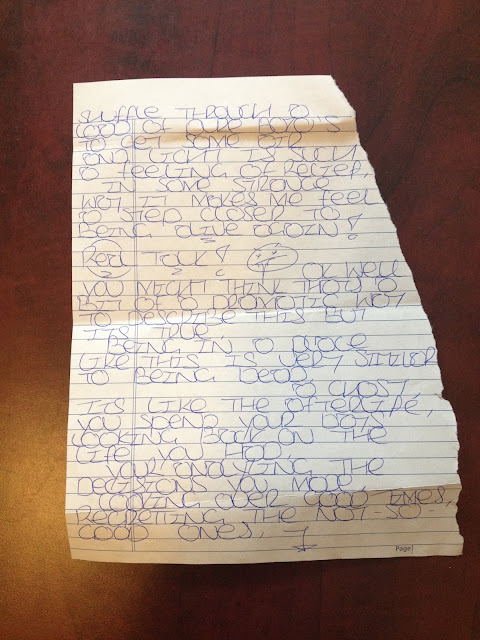 SUFFLE THROUGH A
LOAD OF OLDE BODY'S
TO GET SOME AIR
AND LIGHT IS SUCH
A FEELING OF RELIEF,
IN SOME STRANGE
WAY IT MAKES ME FEEL
A STEP CLOSER TO
BEING ALIVE AGAIN!
REAL TALK!
OK WELL
YOU MIGHT THINK THATS A
BIT OF A DRAMATIC WAY
TO DESCRIBE THIS BUT
ITS TRUE
BEING IN A PLACE
LIKE THIS IS VERY SIMILAR
TO BEING DEAD
A GHOST
ITS LIKE THE AFTERLIFE,
YOU SPEND YOUR DAYS
LOOKING BACK ON THE
LIFE YOU HAD,
YOUR ANALYING THE
DECISIONS YOU MADE
LOOKING OVER GOOD TIMES,
REGRETTING THE NOT-SO-
GOOD ONES,
Page